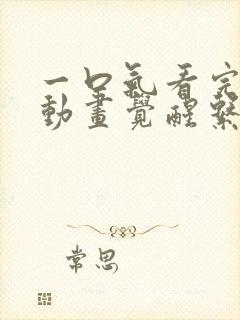 一口氣看完
動畫覺醒繫
常思